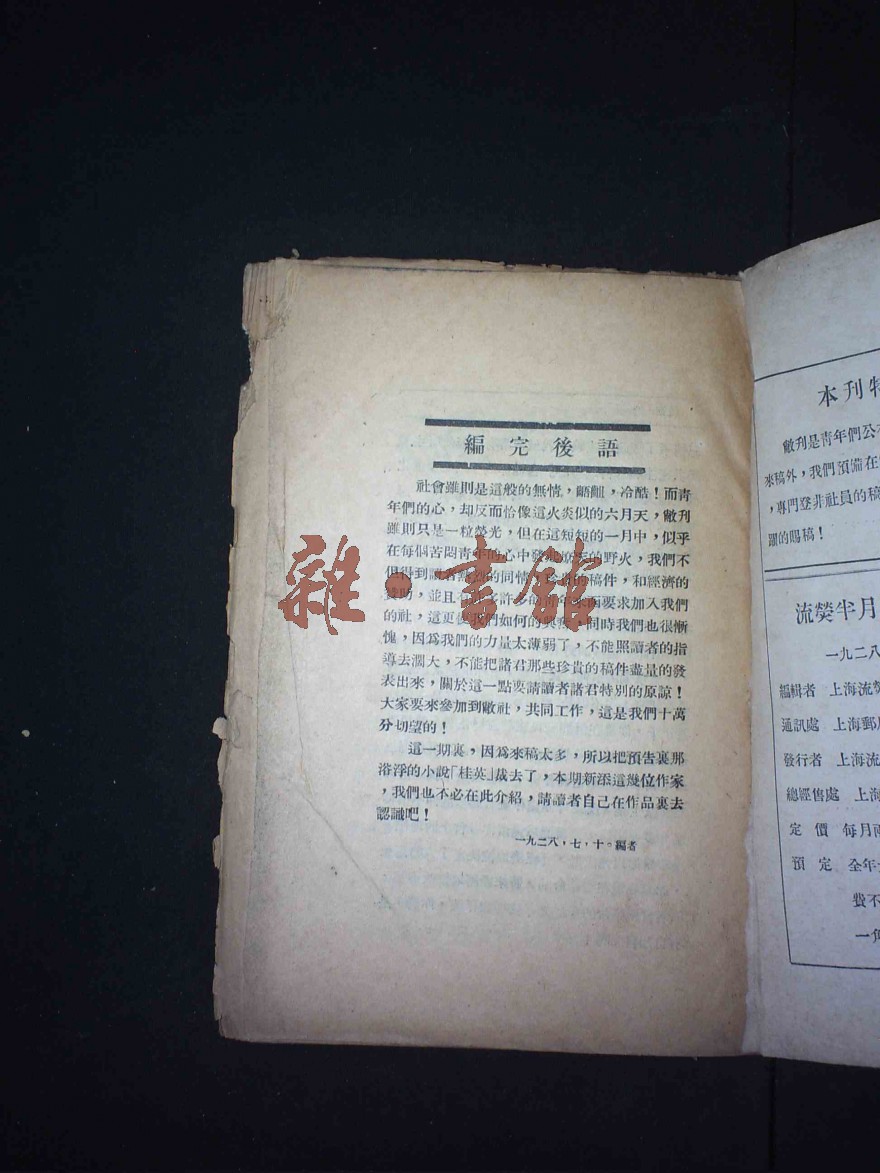 編完後語
社會雖則是這般的無情，齷齪，冷酷！而靑
年們的心，却反而恰像這火炎似的六月天，敝刋
雖則只是一粒熒光，但在這短短的一月中，似乎
在每個苦悶靑年的心中發 的野火，我們不
但得到讀者熱烈的同情 珍貴的稿件，和經濟的
贊助，並且 許多的 來函要求加入我們
的社，這更使我們如何的興奮 同時我們也很慚
愧，因爲我們的力量太薄弱了，不能照讀者的指
導去濶大，不能把諸君那些珍貴的稿件盡量的發
表出來，關於這一點要請讀者諸君特別的原諒！
大家要來參加到敝社，共同工作，這是我們十萬
分切望的！
這一期裏，因爲來稿太多，所以把預告裏那
浴浮的小說「桂英」裁去了，本期新添這幾位作家
，我們也不必在此介紹，請讀者自己在作品裏去
認識吧！
一九二八，七，十。編者
雜·書館
本刋特
敝刋是靑年們公
來稿外，我們預備在
，專門登非社員的稿
躍的賜稿！
流熒半月
一九二八
編輯者 上海流熒
通訊處 上海郵
發行者 上海流
總經售處 上海
定價 每月兩
預定 全年
費不
一